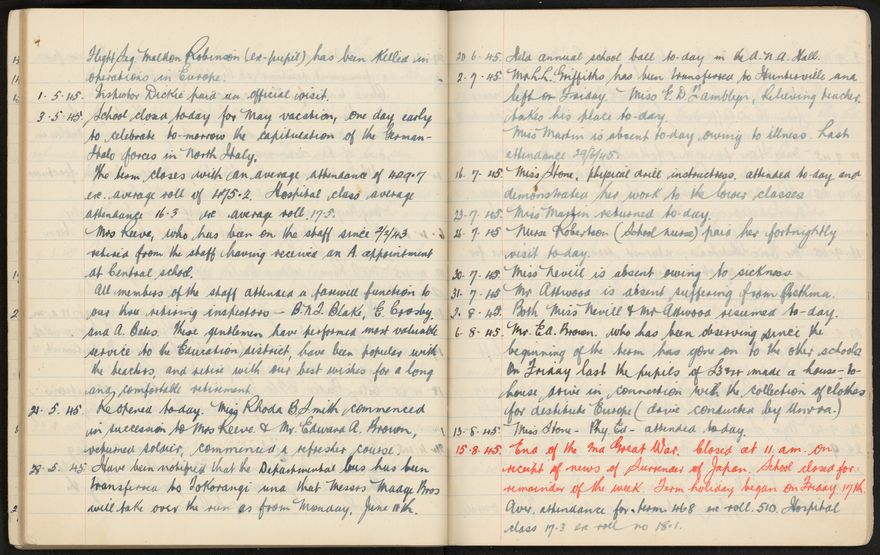 Flight Sig. Maldon Robinson (ex-pupil) has been killed in
operations in Europe.
1. 5. 45. Inspector Dickie paid an official visit.
3. 5. 45. School closed today for May vacation, one day early
to celebrate to-morrow the capitulation of the German-
Italo forces in North Italy.
The term closes with an average attendance of 429.7
ex. average roll of 475.2. Hospital class average
attendance 16.3 ex average roll 17.5.
Mrs Reeve, who has been on the staff since 2/2/43
retired from the staff having received an A appointment
at Central school.
All members of the staff attended a farewell function to
our three retiring inspectors - B.N.J. Blake, E. Crosby,
and A. Bates. These gentlemen have performed most valuable
service to the Education district, have been popular with
the teachers, and retire with our best wishes for a long
and comfortable retirement.
21. 5. 45. Re opened to-day. Miss Rhoda B. Smith commenced
in succession to Mrs Reeve & Mr. Edward A. Brown,
returned soldier, commenced a refresher course.
28. 5. 45 Have been notified that the Departmental bus has been
transferred to Tokorangi and that Messrs Madge Bros
will take over the run as from Monday, June 11th.
20. 6. 45. Held annual school ball to-day in the A.N.A. Hall.
2. 7. 45 Mr L.L. Griffiths has been transferred to Hunterville and
left on Friday. Miss E. D. Tamblyn, Relieving teacher,
takes his place to-day.
Miss Martin is absent to-day owing to illness. Last
attendance 29/6/45.
16. 7. 45 Miss Stone, physical drill instructress, attended to-day and
demonstrated her work to the lower classes
23. 7. 45. Miss Martin returned to-day.
26. 7. 45. Nurse Robertson (School nurse) paid her fortnightly
visit to-day.
30. 7. 45. Miss Nevill is absent owing to sickness
31. 7. 45 Mr Attwood is absent suffering from Asthma.
2. 8. 45. Both Miss Nevill & Mr Attwood resumed to-day.
6. 8. 45. Mr. E.A. Brown, who has been observing since the
beginning of the term has gone on to the other schools
On Friday last the pupils of made a house-to-
house drive in connection with the collection of clothes
for destitute Europe (drive conducted by Unrra.)
13. 8. 45. Miss Stone - Phy Ed - attended to-day.
15. 8. 45. End of the 2nd Great War. Closed at 11. am. on
receipt of news of Surrender of Japan. School closed for
remainder of the week. Term holiday began on Friday 17th.
Aver. attendance for term 468 ex roll 510. Hospital
class 17.3 ex roll no 18.1.